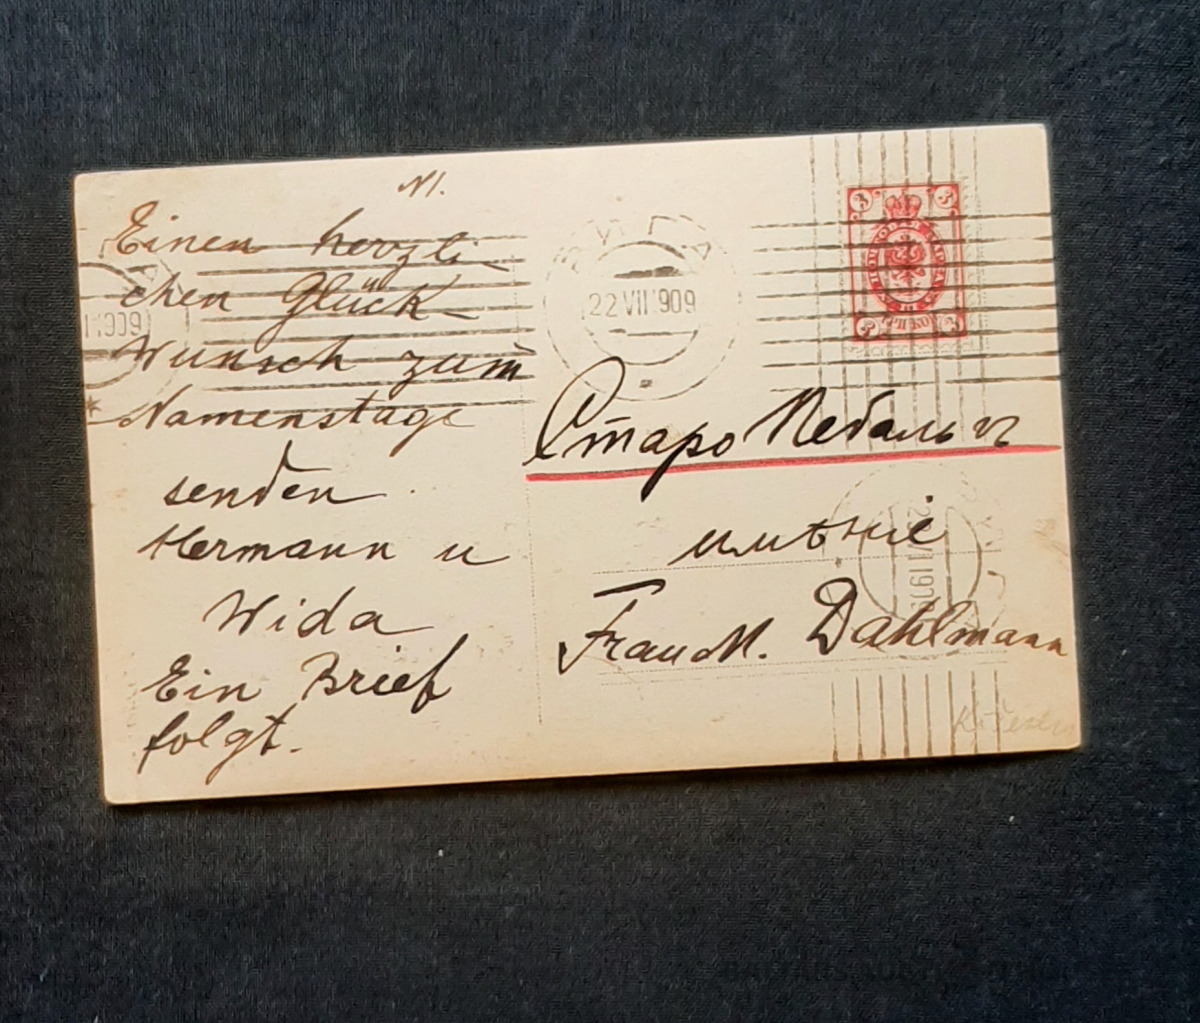 N1.
Einen herzli
chen Glück-
Wunsch zum
Namenstage
senden
Hermann u
Wida
Ein Brief
folgt.
РИГА
22 VII 1909
1909
3 3
3 3
Старо Пебальгъ
имѣніе
Frau M. Dahlmann